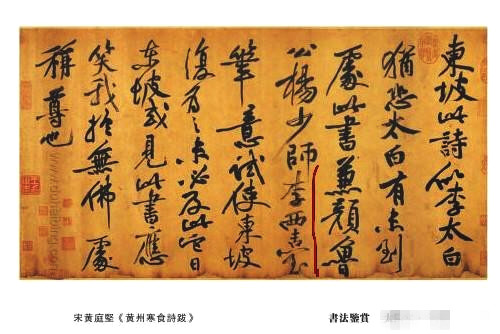 東坡此詩似李太白
猶恐太白有未到
處此書兼顏魯
公楊少師李西臺
筆意試使東坡
復為之未必及此它日
東坡或見此書應
笑我於無佛處
稱尊也
宋黃庭堅《黃州寒食詩跋》
書法鑒賞